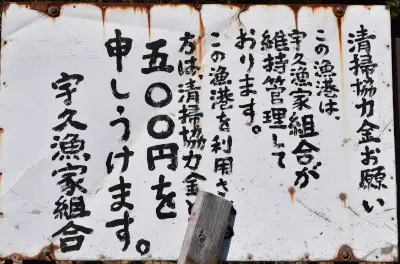 清掃協力金お願い
この漁港は、
宇久漁家組合が
維持管理して
おります。
この漁港を利用さ
方は、清掃協力金と
五〇〇円を
申しうけます。
宇久漁家組合